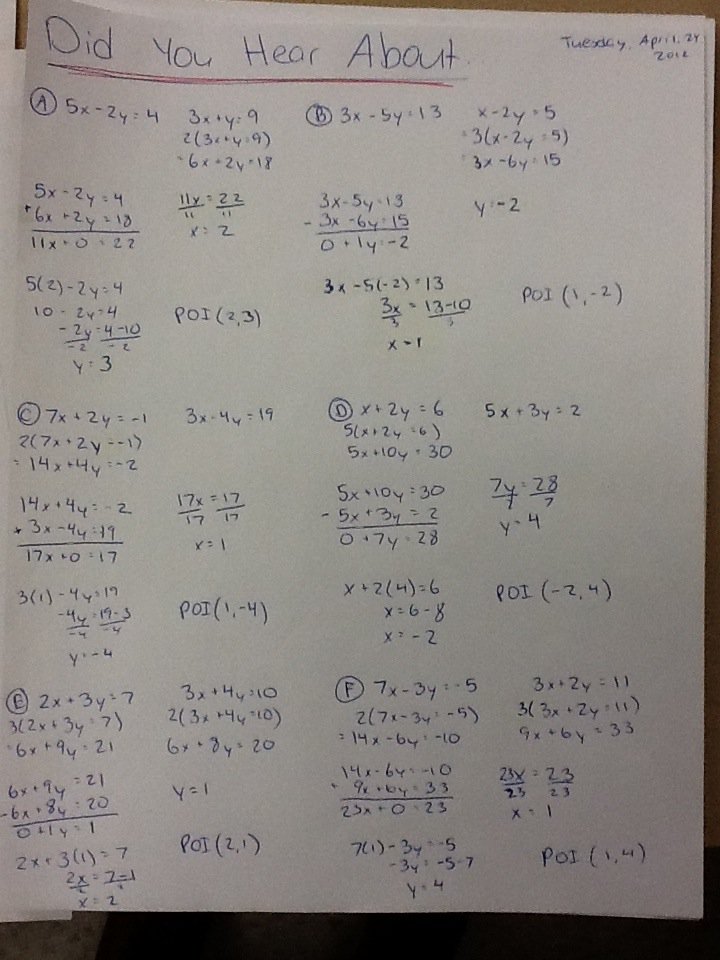 Did You Hear About
Tuesday, April, 24
2012
A 5x - 2y = 4
3x + y = 9
2(3x + y = 9)
= 6x + 2y = 18
5x - 2y = 4
+ 6x + 2y = 18
11x + 0 = 22
11x = 22
11 11
x = 2
5(2) - 2y = 4
10 - 2y = 4
-2y = 4 - 10
-2 -2
y = 3
POI (2,3)
B 3x - 5y = 13
x - 2y = 5
= 3(x - 2y = 5)
= 3x - 6y = 15
3x - 5y = 13
- 3x - 6y = 15
0 + 1y = -2
y = -2
3x - 5(-2) = 13
3x = 13 - 10
3 3
x = 1
POI (1, -2)
C 7x + 2y = -1
2(7x + 2y = -1)
= 14x + 4y = -2
3x - 4y = 19
14x + 4y = -2
+ 3x - 4y = 19
17x + 0 = 17
17x = 17
17 17
x = 1
3(1) - 4y = 19
-4y = 19 - 3
-4 -4
y = -4
POI (1, -4)
D x + 2y = 6
5(x + 2y = 6)
5x + 10y = 30
5x + 3y = 2
5x + 10y = 30
- 5x + 3y = 2
0 + 7y = 28
7y = 28
7 7
y = 4
x + 2(4) = 6
x = 6 - 8
x = -2
POI (-2, 4)
E 2x + 3y = 7
3(2x + 3y = 7)
= 6x + 9y = 21
3x + 4y = 10
2(3x + 4y = 10)
6x + 8y = 20
6x + 9y = 21
- 6x + 8y = 20
0 + 1y = 1
y = 1
2x + 3(1) = 7
2x = 7 - 1
2
x = 2
POI (2,1)
F 7x - 3y = -5
2(7x - 3y = -5)
= 14x - 6y = -10
3x + 2y = 11
3(3x + 2y = 11)
9x + 6y = 33
14x - 6y = -10
+ 9x + 6y = 33
23x + 0 = 23
23x = 23
23 23
x = 1
7(1) - 3y = -5
-3y = -5 - 7
y = 4
POI (1, 4)